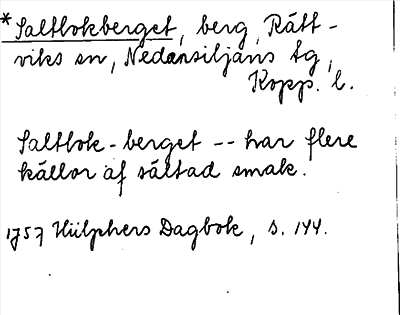 *Saltlokberget, berg, Rätt-
viks sn, Nedansiljans tg,
Kopp. l.
Saltlok-berget -- har flere
källor af sältad smak.
1757 Hülphers Dagbok, s. 144.